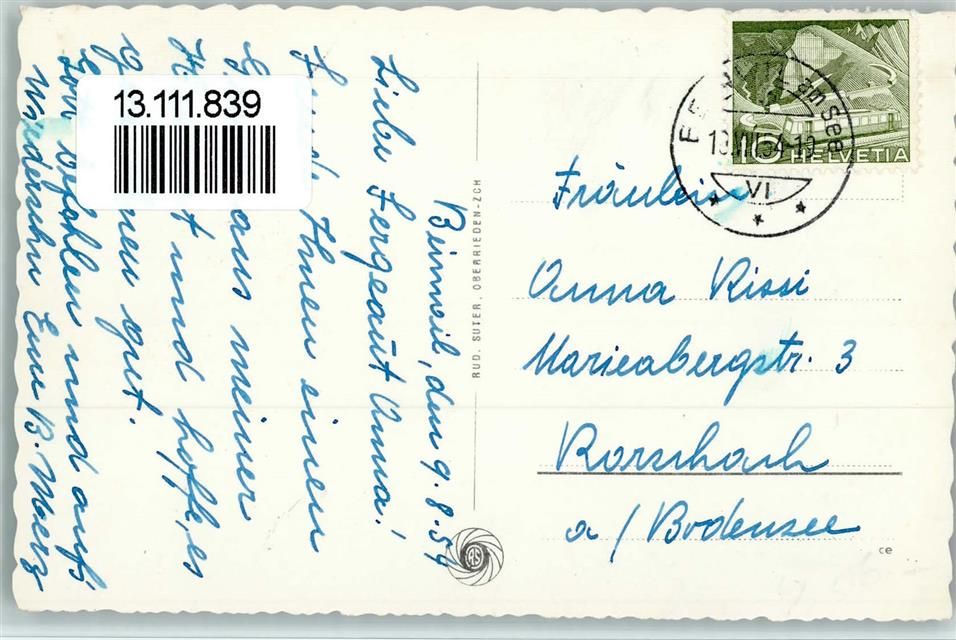 13.111.839
Beinwil, den 9.8.54
Liebe Jergeaüt Anna!
Sende Ihnen einen
aus meiner
und hoffe, es
gut.
Gott befohlen und aufs
Wiedersehn Eure B. Merz
RUD. SUTER, OBERRIEDEN-ZCH
RS
am See
VI
10
HELVETIA
Fräulein
Anna Rissi
Marieabergstr. 3
Rorschach
a/Bodensee
ce